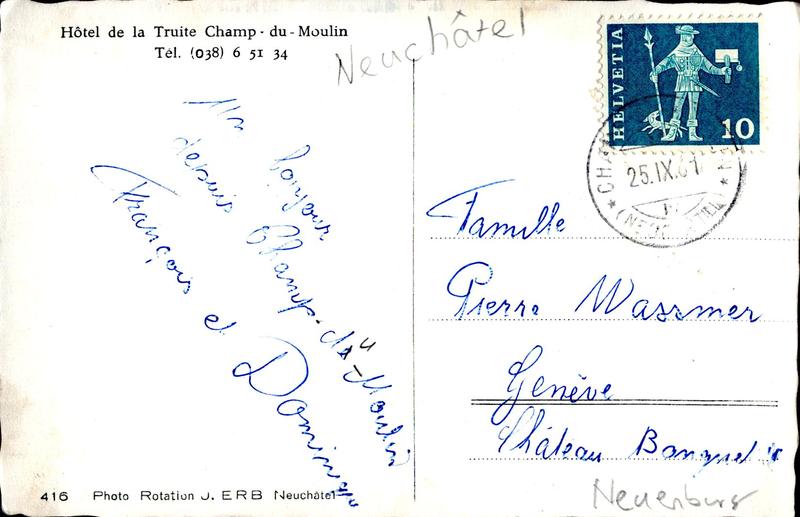 Hôtel de la Truite Champ-du-Moulin
Tél. (038) 6 51 34
Neuchâtel
HELVETIA
10
25.IX.61
(NEUCHÂTEL)
Un bonjour
depuis Champ-du-Moulin
u
François et Dominique
Famille
Pierre Wassmer
Genève
Château Banquet
416 Photo Rotation J. ERB Neuchâtel
Neuenburg